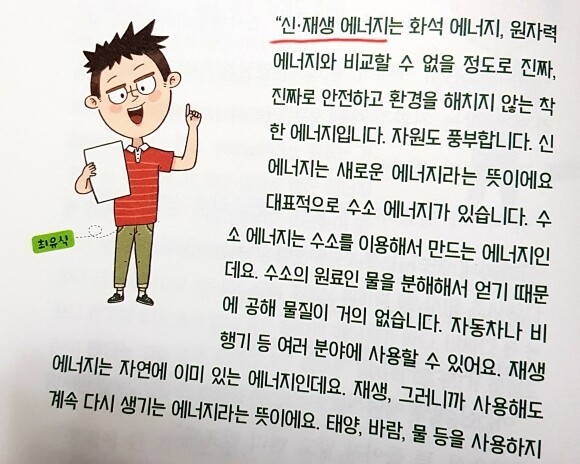 "신·재생 에너지는 화석 에너지, 원자력
에너지와 비교할 수 없을 정도로 진짜,
진짜로 안전하고 환경을 해치지 않는 착
한 에너지입니다. 자원도 풍부합니다. 신
에너지는 새로운 에너지라는 뜻이에요
대표적으로 수소 에너지가 있습니다. 수
소 에너지는 수소를 이용해서 만드는 에너지인
데요. 수소의 원료인 물을 분해해서 얻기 때문
에 공해 물질이 거의 없습니다. 자동차나 비
행기 등 여러 분야에 사용할 수 있어요. 재생
에너지는 자연에 이미 있는 에너지인데요. 재생, 그러니까 사용해도
계속 다시 생기는 에너지라는 뜻이에요. 태양, 바람, 물 등을 사용하지
최유식